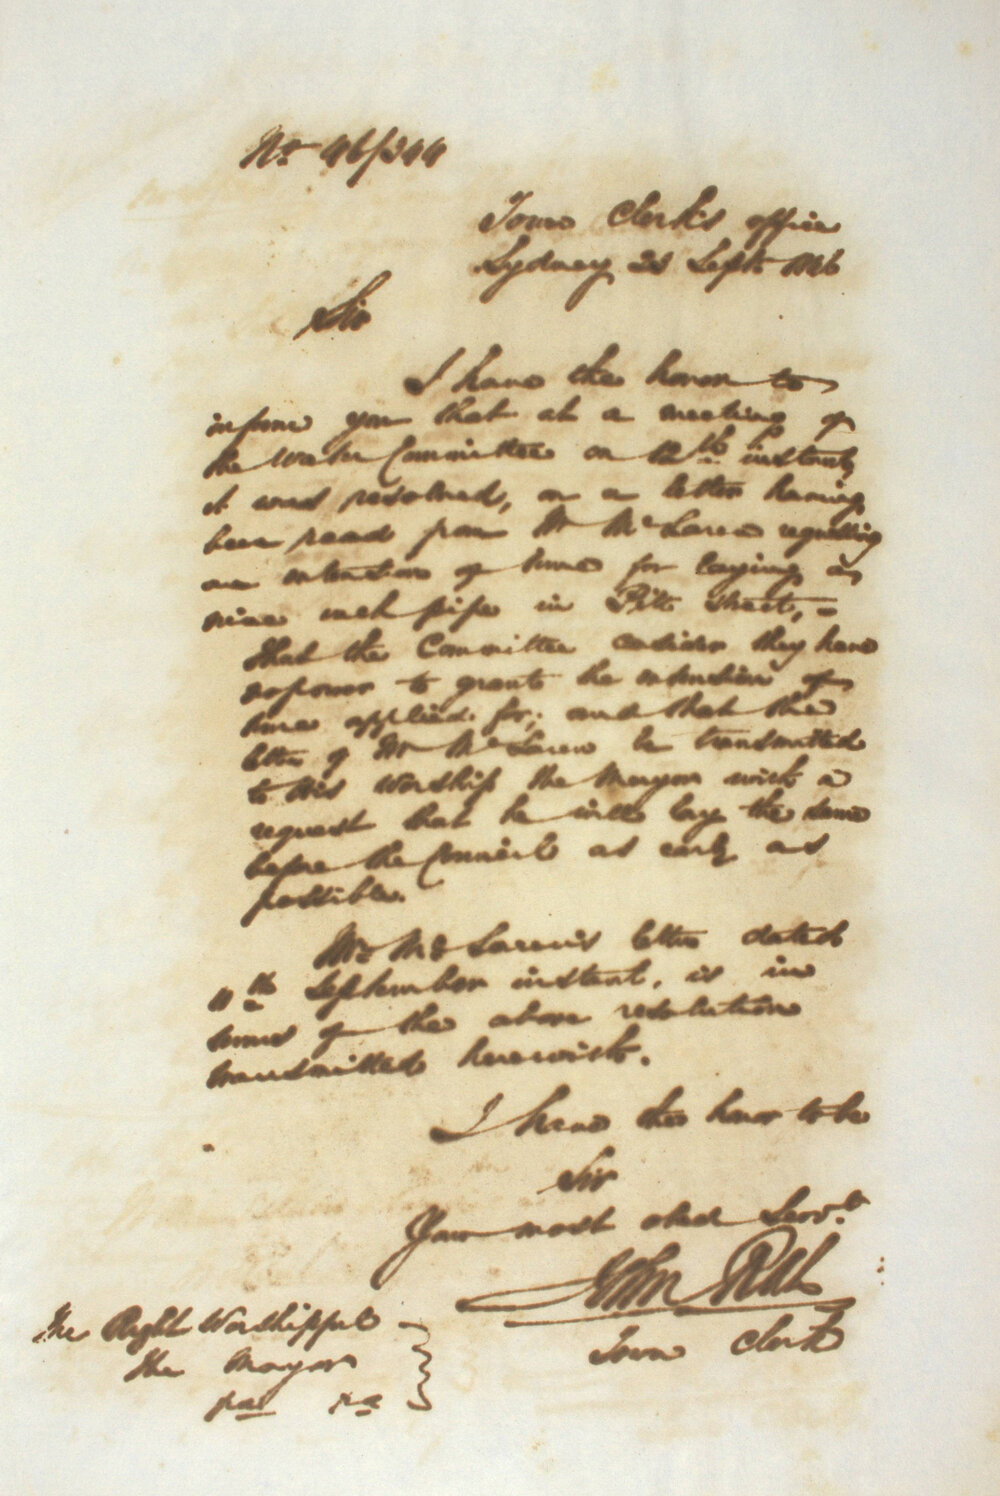 No 46/244
Town Clerk's office
Sydney 21 Septr 1846
Sir
I have the honor to
inform you that at a meeting of
the Water Committee on 12th instant,
it was resolved, on a letter having
been read from Mr McLaren requesting
an extension of time for laying a
nine inch pipe in Pitt Street, =
That the Committee consider they have
no power to grant the extension of
time applied for; and that the
letter of Mr McLaren be transmitted
to His Worship the Mayor with a
request that he will lay the same
before the Council as early as
possible.
Mr McLaren's letter dated
11th September instant, is in
terms of the above resolution
transmitted herewith.
I have the honor to be
Sir
Your most obed Servt
John Rae
Town Clerk
The Right Worshipful
the Mayor